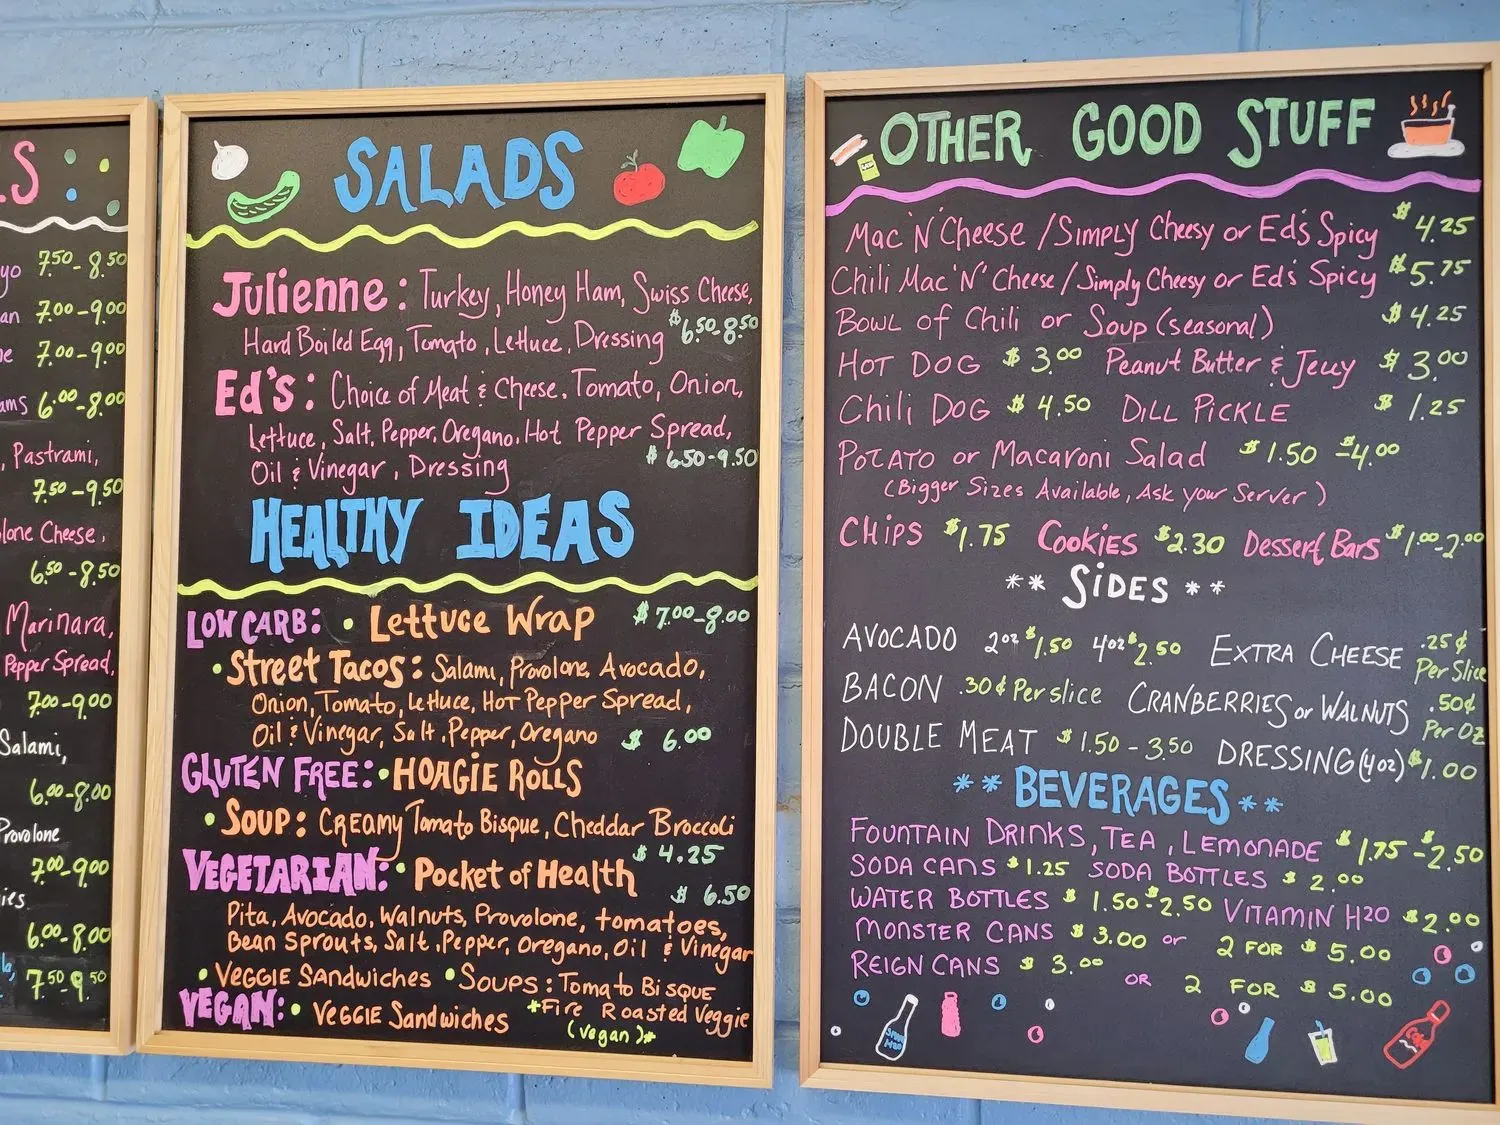 LS
yo 7.50-8.50
an 7.00-9.00
ne 7.00-9.00
ams 6.00-8.00
, Pastrami,
7.50-9.50
lone Cheese,
6.50-8.50
Marinara,
Pepper Spread,
7.00-9.00
Salami,
6.00-8.00
Provolone
7.00-9.00
ies
6.00-8.00
la,
7.50 9.50
SALADS
Julienne: Turkey, Honey Ham, Swiss Cheese,
Hard Boiled Egg, Tomato, Lettuce, Dressing $6.50-8.50
Ed's: Choice of Meat & Cheese, Tomato, Onion,
Lettuce, Salt, Pepper, Oregano, Hot Pepper Spread,
Oil & Vinegar, Dressing $6.50-9.50
HEALTHY IDEAS
LOW CARB: • Lettuce Wrap $7.00-8.00
• Street Tacos: Salami, Provolone, Avocado,
Onion, Tomato, Lettuce, Hot Pepper Spread,
Oil & Vinegar, Salt, Pepper, Oregano $6.00
GLUTEN FREE: • HOAGIE ROLLS
• SOUP: CREAMY Tomato Bisque, Cheddar Broccoli
$4.25
VEGETARIAN: • Pocket of Health
$6.50
Pita, Avocado, Walnuts, Provolone, tomatoes,
Bean Sprouts, Salt, Pepper, Oregano, Oil & Vinegar
• VEGGIE SANDWICHES • SOUPS: Tomato BISQUE
VEGAN: • VEGGIE Sandwiches *Fire Roasted Veggie
(vegan)*
OTHER GOOD STUFF
Mac 'N' Cheese / Simply Cheesy or Ed's Spicy $4.25
Chili Mac 'N' Cheese / Simply Cheesy or Ed's Spicy $5.75
BOWL of Chili or Soup (seasonal) $4.25
HOT DOG $3.00 Peanut Butter & Jelly $3.00
Chili DOG $4.50 DILL PICKLE $1.25
POTATO or Macaroni Salad $1.50-$4.00
(Bigger Sizes Available, Ask your Server)
CHIPS $1.75 COOKIES $2.30 Dessert Bars $1.00-2.00
** SIDES **
AVOCADO 2oz $1.50 4oz $2.50 EXTRA CHEESE .25¢ Per Slice
BACON .30¢ Per slice CRANBERRIES or WALNUTS .50¢ Per Oz
DOUBLE MEAT $1.50-3.50 DRESSING (4oz) $1.00
** BEVERAGES **
FOUNTAIN DRINKS, TEA, LEMONADE $1.75-$2.50
SODA CANS $1.25 SODA BOTTLES $2.00
WATER BOTTLES $1.50-$2.50 VITAMIN H2O $2.00
MONSTER CANS $3.00 or 2 FOR $5.00
REIGN CANS $3.00 OR 2 FOR $5.00